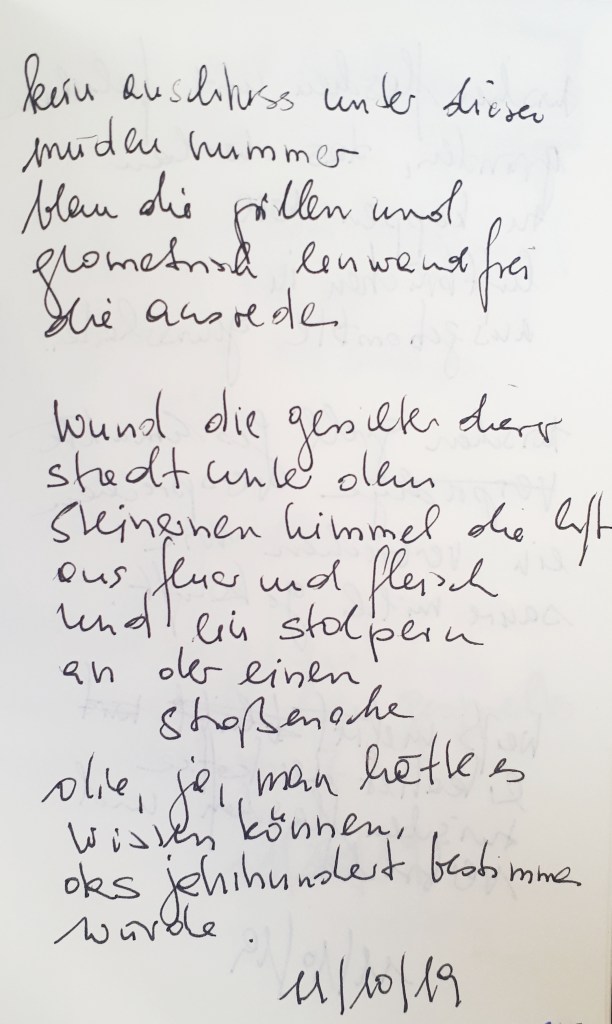 kein anschluss unter dieser
müden nummer
blau die grillen und
geometrisch einwandfrei
die ausrede.
wund die gesichter dieser
stadt unter dem
steinernen himmel die luft
aus feuer und fleisch
und ein stolpern
an der einen
straßenecke
die, ja, man hätte es
wissen können,
das jahrhundert bestimmen
würde.
11/10/19